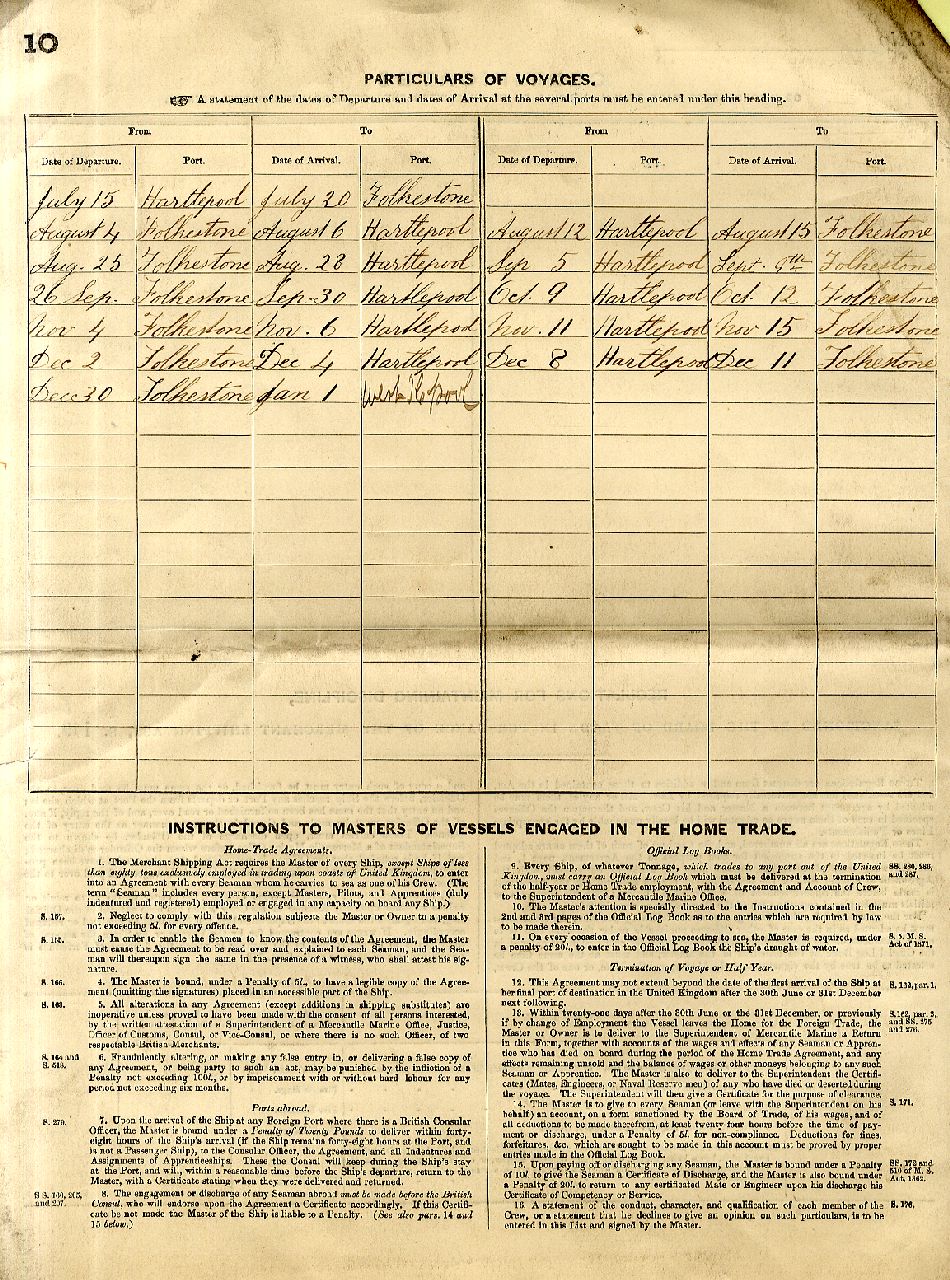 10
PARTICULARS OF VOYAGES.
A statement of the dates of Departure and dates of Arrival at the several ports must be entered under this heading.
From To From To
Date of Departure. Port. Date of Arrival. Port. Date of Departure. Port. Date of Arrival. Port.
July 15 Hartlepool July 20 Folkestone
August 4 Folkestone August 6 Hartlepool August 12 Hartlepool August 15 Folkestone
Aug. 25 Folkestone Aug. 28 Hartlepool Sep 5 Hartlepool Sept. 9th Folkestone
26 Sep. Folkestone Sep-30 Hartlepool Oct. 9 Hartlepool Oct. 12 Folkestone
Nov 4 Folkestone Nov. 6 Hartlepool Nov. 11 Hartlepool Nov 15 Folkestone
Dec 2 Folkestone Dec 4 Hartlepool Dec 8 Hartlepool Dec 11 Folkestone
Dec 30 Folkestone Jan 1 West H'pool
INSTRUCTIONS TO MASTERS OF VESSELS ENGAGED IN THE HOME TRADE.
Home-Trade Agreements.
1. The Merchant Shipping Act requires the Master of every Ship, except Ships of less
than eighty tons exclusively employed in trading upon coasts of United Kingdom, to enter
into an Agreement with every Seaman whom he carries to sea as one of his Crew. (The
term "Seaman" includes every person, except Masters, Pilots, and Apprentices (duly
indentured and registered) employed or engaged in any capacity on board any Ship.)
2. Neglect to comply with this regulation subjects the Master or Owner to a penalty
not exceeding 5l. for every offence.
3. In order to enable the Seamen to know the contents of the Agreement, the Master
must cause the Agreement to be read over and explained to each Seaman, and the Sea-
man will thereupon sign the same in the presence of a witness, who shall attest his sig-
nature.
S. 166. 4. The Master is bound, under a Penalty of 5l., to have a legible copy of the Agree-
ment (omitting the signatures) placed in an accessible part of the Ship.
5. All alterations in any Agreement (except additions in shipping substitutes) are
inoperative unless proved to have been made with the consent of all persons interested,
by the written attestation of a Superintendent of a Mercantile Marine Office, Justice,
Officer of Customs, Consul, or Vice-Consul, or where there is no such Officer, of two
respectable British Merchants.
6. Fraudulently altering, or making any false entry in, or delivering a false copy of
any Agreement, or being party to such an act, may be punished by the infliction of a
Penalty not exceeding 100l., or by imprisonment with or without hard labour for any
period not exceeding six months.
Ports abroad.
7. Upon the arrival of the Ship at any Foreign Port where there is a British Consular
Officer, the Master is bound under a Penalty of Twenty Pounds to deliver within forty-
eight hours of the Ship's arrival (if the Ship remains forty-eight hours at the Port, and
is not a Passenger Ship), to the Consular Officer, the Agreement, and all Indentures and
Assignments of Apprenticeships. These the Consul will keep during the Ship's stay
at the Port, and will, within a reasonable time before the Ship's departure, return to the
Master, with a Certificate stating when they were delivered and returned.
8. The engagement or discharge of any Seaman abroad must be made before the British
Consul, who will endorse upon the Agreement a Certificate accordingly. If this Certifi-
cate be not made the Master of the Ship is liable to a Penalty. (See also pars. 14 and
15 below.)
Official Log Books.
9. Every Ship, of whatever Tonnage, which trades to any port out of the United
Kingdom, must carry an Official Log Book which must be delivered at the termination
of the half-year or Home Trade employment, with the Agreement and Account of Crew,
to the Superintendent of a Mercantile Marine Office.
10. The Master's attention is specially directed to the Instructions contained in the
2nd and 3rd pages of the Official Log Book as to the entries which are required by law
to be made therein.
11. On every occasion of the Vessel proceeding to sea, the Master is required, under
a penalty of 20l., to enter in the Official Log Book the Ship's draught of water.
Termination of Voyage or Half Year.
12. This Agreement may not extend beyond the date of the first arrival of the Ship at
her final port of destination in the United Kingdom after the 30th June or 31st December
next following.
13. Within twenty-one days after the 30th June or the 31st December, or previously
if by change of Employment the Vessel leaves the Home for the Foreign Trade, the
Master or Owner is to deliver to the Superintendent of Mercantile Marine a Return
in this Form, together with accounts of the wages and effects of any Seaman or Appren-
tice who has died on board during the period of the Home Trade Agreement, and any
effects remaining unsold and the balance of wages or other moneys belonging to any such
Seaman or Apprentice. The Master is also to deliver to the Superintendent the Certifi-
cates (Mates, Engineers, or Naval Reserve men) of any who have died or deserted during
the voyage. The Superintendent will then give a Certificate for the purpose of clearance.
4. The Master is to give to every Seaman (or leave with the Superintendent on his
behalf) an account, on a form sanctioned by the Board of Trade, of his wages, and of
all deductions to be made therefrom, at least twenty four hours before the time of pay-
ment or discharge, under a Penalty of 5l. for non-compliance. Deductions for fines,
forfeitures, &c. which are sought to be made in this account must be proved by proper
entries made in the Official Log Book.
15. Upon paying off or discharging any Seaman, the Master is bound under a Penalty
of 10l. to give the Seaman a Certificate of Discharge, and the Master is also bound under
a Penalty of 20l. to return to any certificated Mate or Engineer upon his discharge his
Certificate of Competency or Service.
16. A statement of the conduct, character, and qualification of each member of the
Crew, or a statement that he declines to give an opinion on such particulars, is to be
entered in this List and signed by the Master.